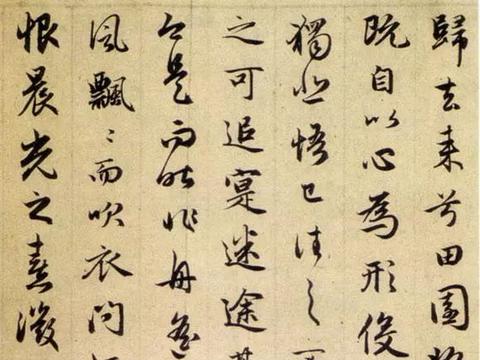 歸去来兮田園
既自以心為形役
獨悲悟已往之
之可追寔迷途其
今是而昨非舟遙
風飄〻而吹衣問
恨晨光之熹微